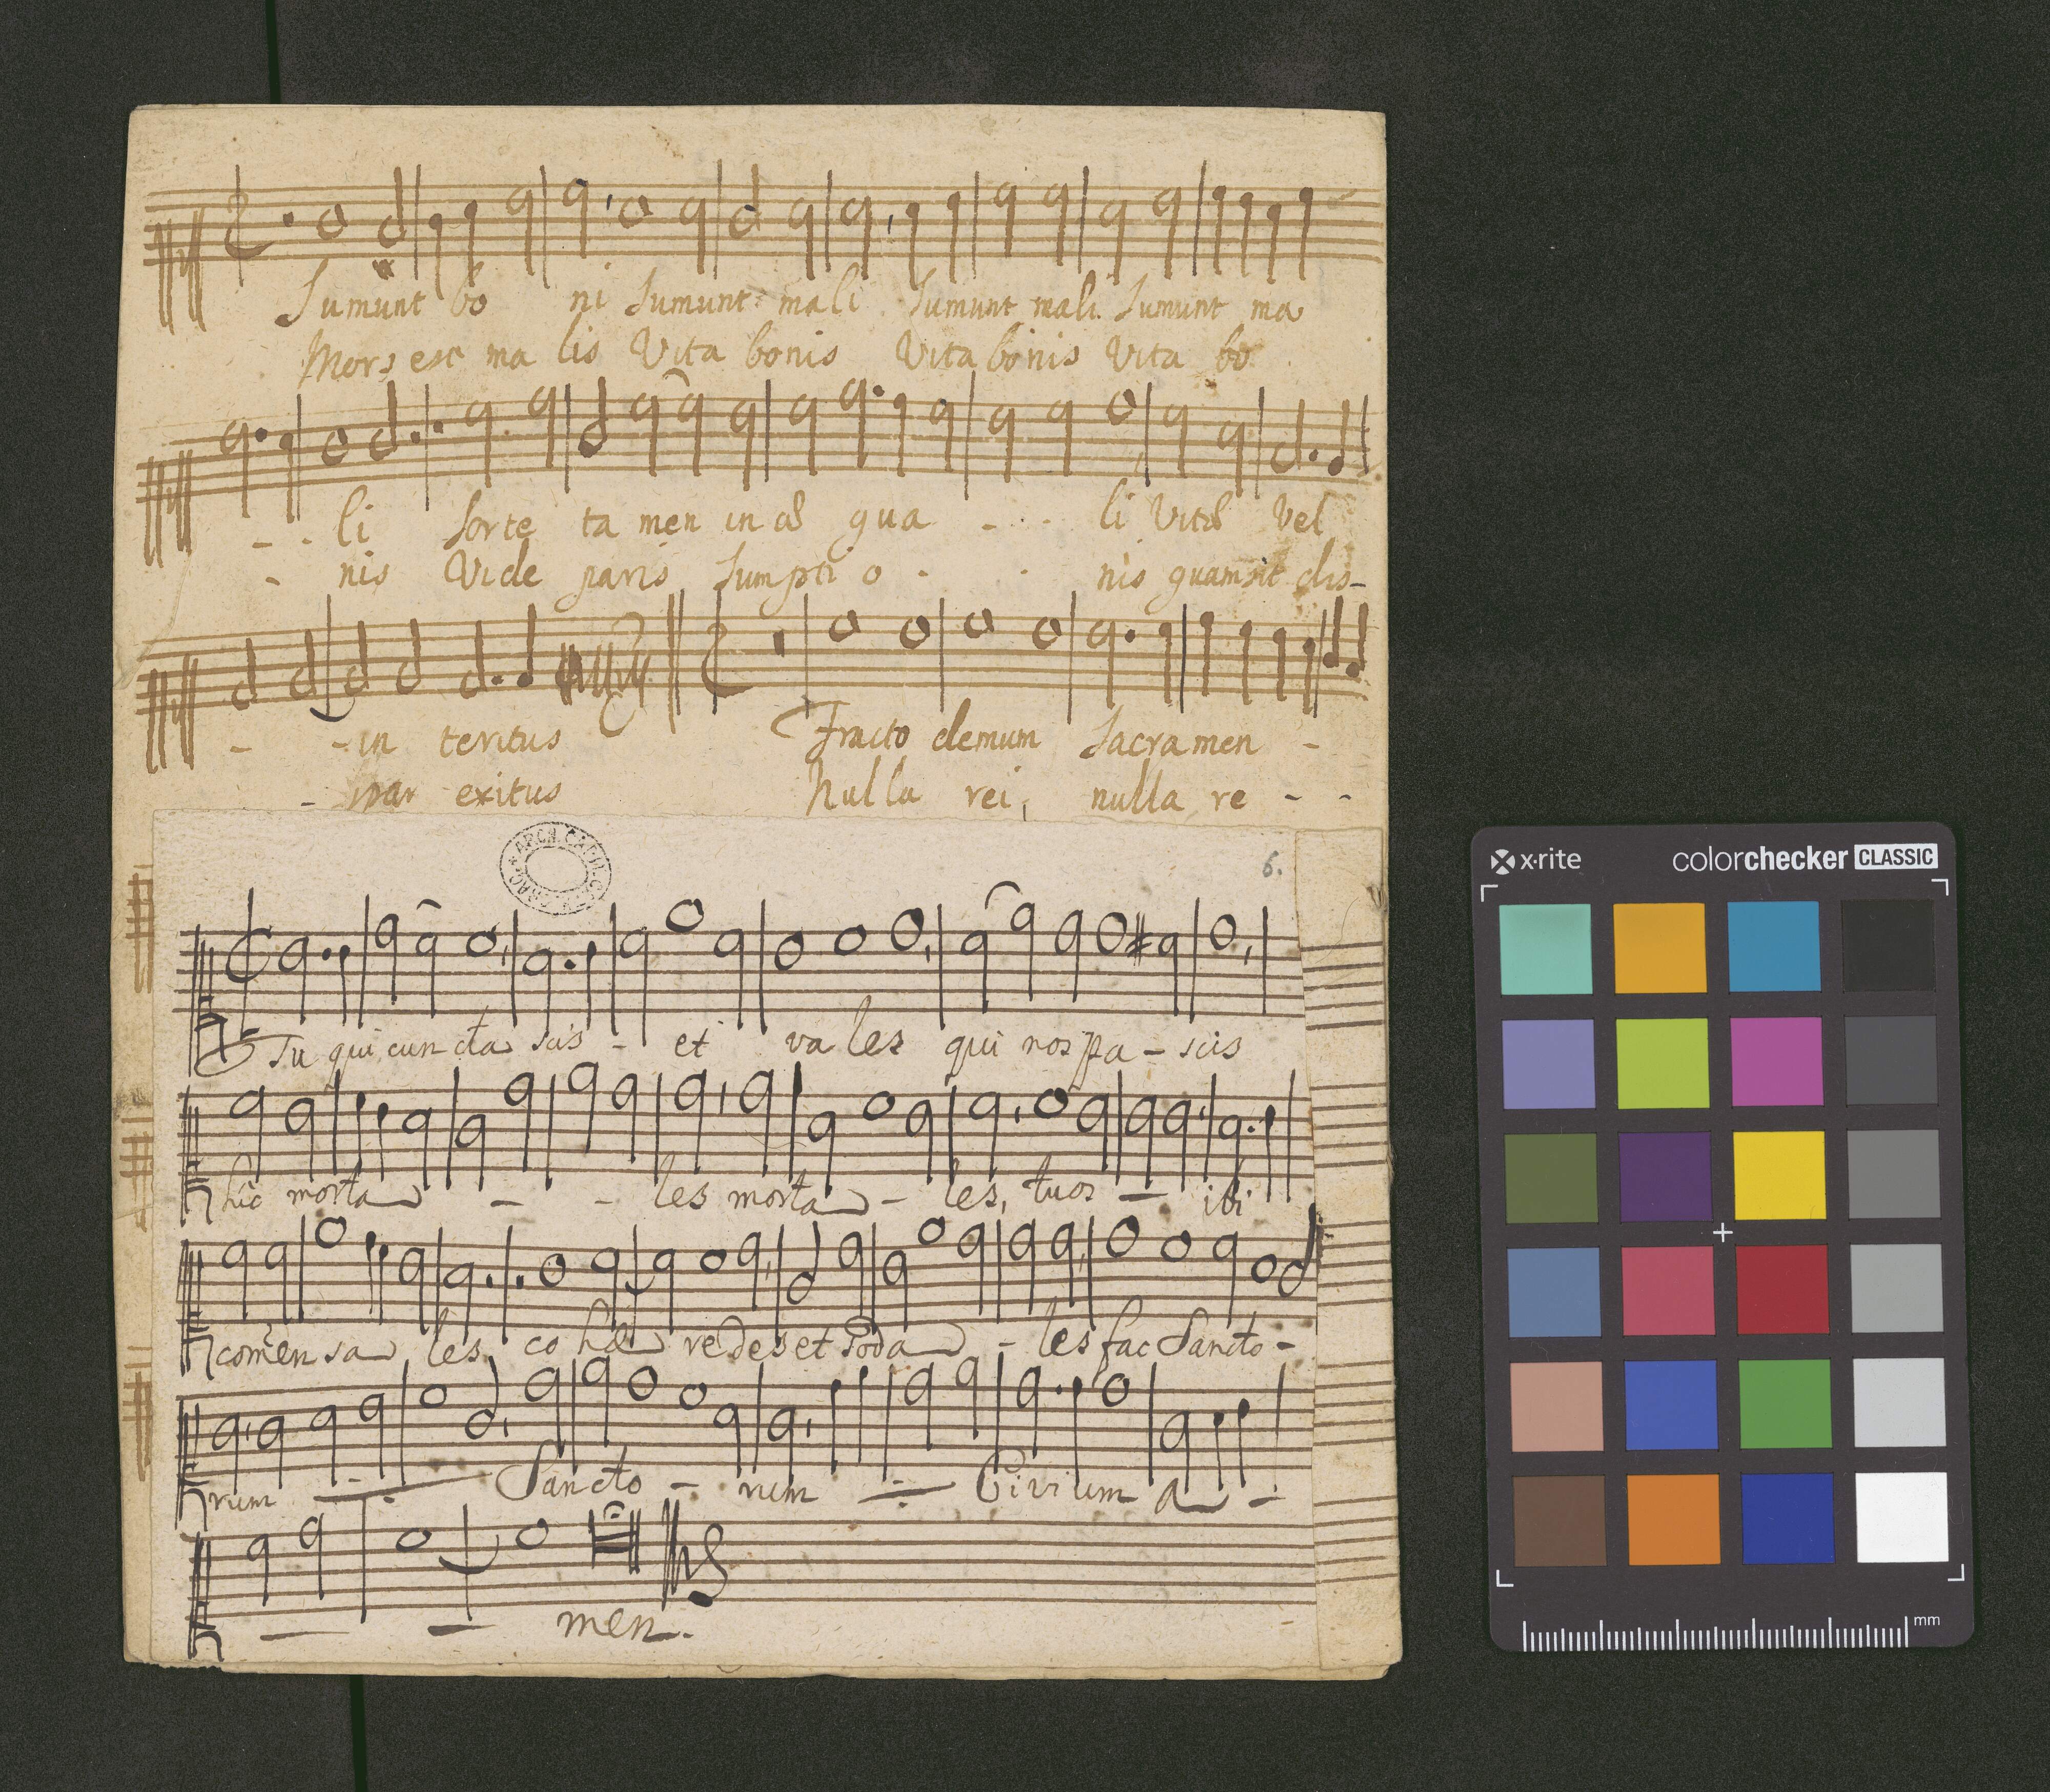 Sumunt bo ni Sumunt mali Sumunt mali. Sumunt ma
Mors est ma lis Vita bonis Vita bonis Vita bo
- - li Sorte ta men in æ qua - - li Vitæ Vel
- nis Vide paris Sumpti o - - nis quam sit dis-
- - in teritus Fracto demum Sacramen -
- par exitus Nulla rei, nulla re - -
6.
Tu qui cuncta scis - et vales qui nos pa - scis
hic morta - - les morta - les, tuos - ibi
comensa les, co hæ redes et Soda - les fac Sancto -
rum - Sancto - rum - Civium a -
- - men.
x·rite colorchecker CLASSIC
mm